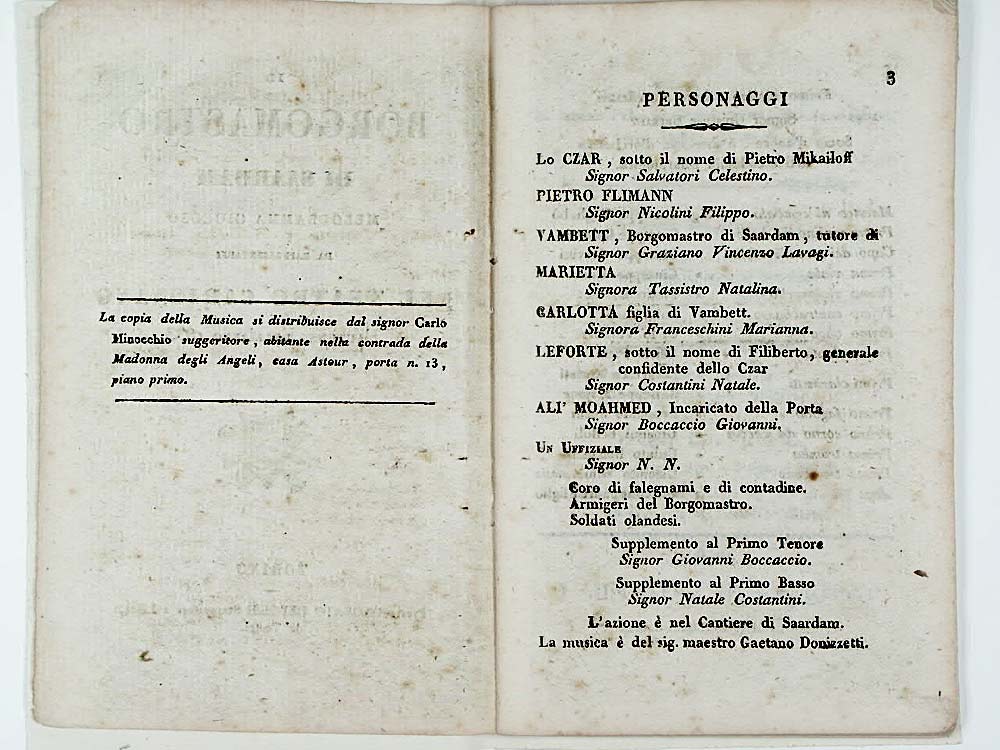 La copia della Musica si distribuisce dal signor Carlo
Minocchio suggeritore, abitante nella contrada della
Madonna degli Angeli, casa Astour, porta n. 13,
piano primo.
3
PERSONAGGI
Lo CZAR, sotto il nome di Pietro Mikailoff
Signor Salvatori Celestino.
PIETRO FLIMANN
Signor Nicolini Filippo.
VAMBETT, Borgomastro di Saardam, tutore di
Signor Graziano Vincenzo Lavagi.
MARIETTA
Signora Tassistro Natalina.
CARLOTTA figlia di Vambett.
Signora Franceschini Marianna.
LEFORTE, sotto il nome di Filiberto, generale
confidente dello Czar
Signor Costantini Natale.
ALI' MOAHMED, Incaricato della Porta
Signor Boccaccio Giovanni.
UN UFFIZIALE
Signor N. N.
Coro di falegnami e di contadine.
Armigeri del Borgomastro.
Soldati olandesi.
Supplemento al Primo Tenore
Signor Giovanni Boccaccio.
Supplemento al Primo Basso
Signor Natale Costantini.
L'azione è nel Cantiere di Saardam.
La musica è del sig. maestro Gaetano Donizzetti.